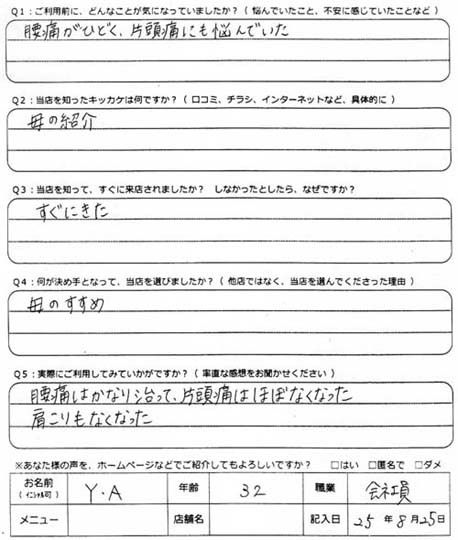 Q1：ご利用前に、どんなことが気になっていましたか？（ 悩んでいたこと、不安に感じていたことなど ）
腰痛がひどく、片頭痛にも悩んでいた
Q2：当店を知ったキッカケは何ですか？（ 口コミ、チラシ、インターネットなど、具体的に ）
母の紹介
Q3：当店を知って、すぐに来店されましたか？　しなかったとしたら、なぜですか？
すぐにきた
Q4：何が決め手となって、当店を選びましたか？（ 他店ではなく、当店を選んでくださった理由 ）
母のすすめ
Q5：実際にご利用してみていかがですか？（ 率直な感想をお聞かせください ）
腰痛はかなり治って、片頭痛はほぼなくなった
肩こりもなくなった
※あなた様の声を、ホームページなどでご紹介してもよろしいですか？　□はい　□匿名で　□ダメ
お名前（イニシャル可）　Y・A　年齢　32　職業　会社員
メニュー　店舗名　記入日　25年8月25日